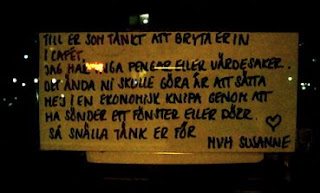 TILL ER SOM TÄNKT ATT BRYTA ER IN
I CAFÉT.
JAG HAR INGA PENGAR ELLER VÄRDESAKER.
DET ÄNDA NI SKULLE GÖRA ÄR ATT SÄTTA
MEJ I EN EKONOMISK KNIPA GENOM ATT
HA SÖNDER ETT FÖNSTER ELLER DÖRR.
SÅ SNÄLLA TÄNK ER FÖR
MVH SUSANNE